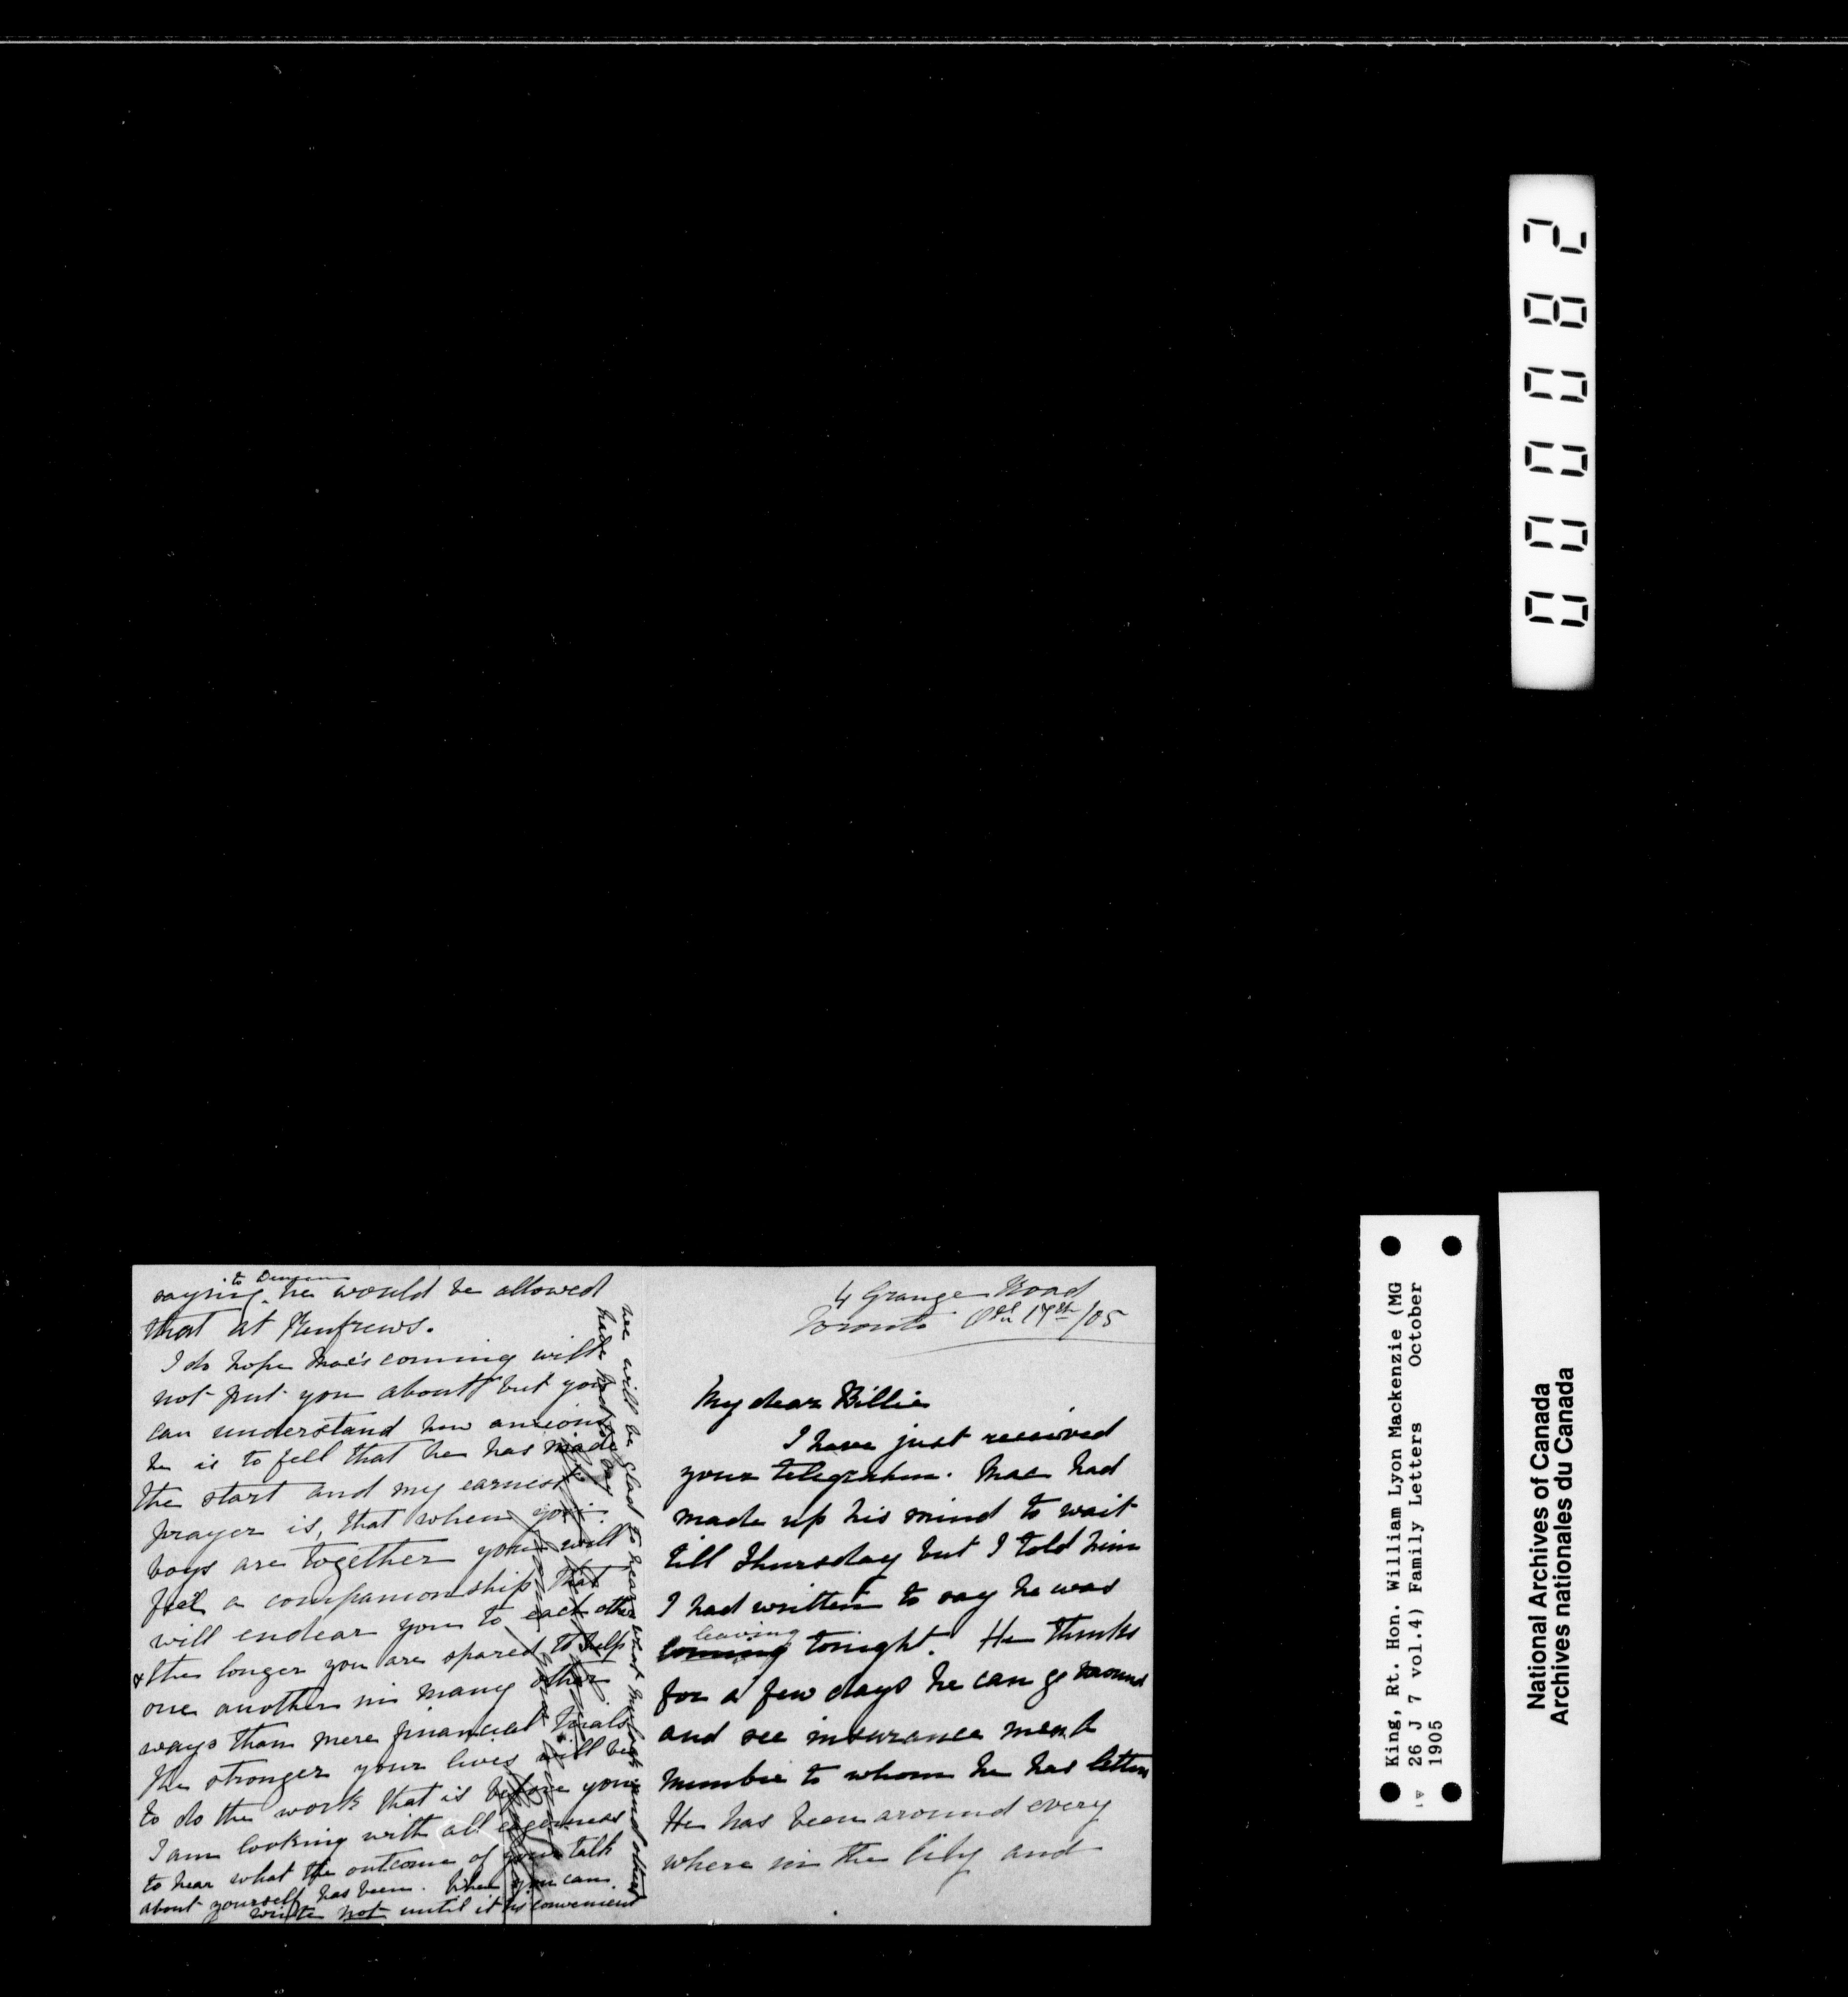 4 Grange Road
Toronto Oct 17th/05
My dear Billie
I have just received
your telegram. Mac had
made up his mind to wait
till Thursday but I told him
I had written to say he was
leaving
coming tonight. He thinks
for a few days he can go around
and see insurance men &
number to whom he has letters
He has been around every
where in the City and
to
saying he would be allowed
that at Renfrews.
I do hope Mac's coming will
not put you about but you
can understand how anxious
he is to fell that he has made
the start and my earnest
prayer is, that when you
boys are together you will
feel a companionship that
will endear you to each other
& the longer you are spared to help
one another in many other
ways than mere financial trials
the stronger your lives will be
to do the work that is before you
I am looking with all eagerness
to hear what the outcome of your talk
about yourself has been. When you can
write not until it is convenient
we will be glad to hear what Mulock and others
have had to say
000082
King, Rt. Hon. William Lyon Mackenzie (MG
26 J 7 vol.4) Family Letters October
1905
National Archives of Canada
Archives nationales du Canada